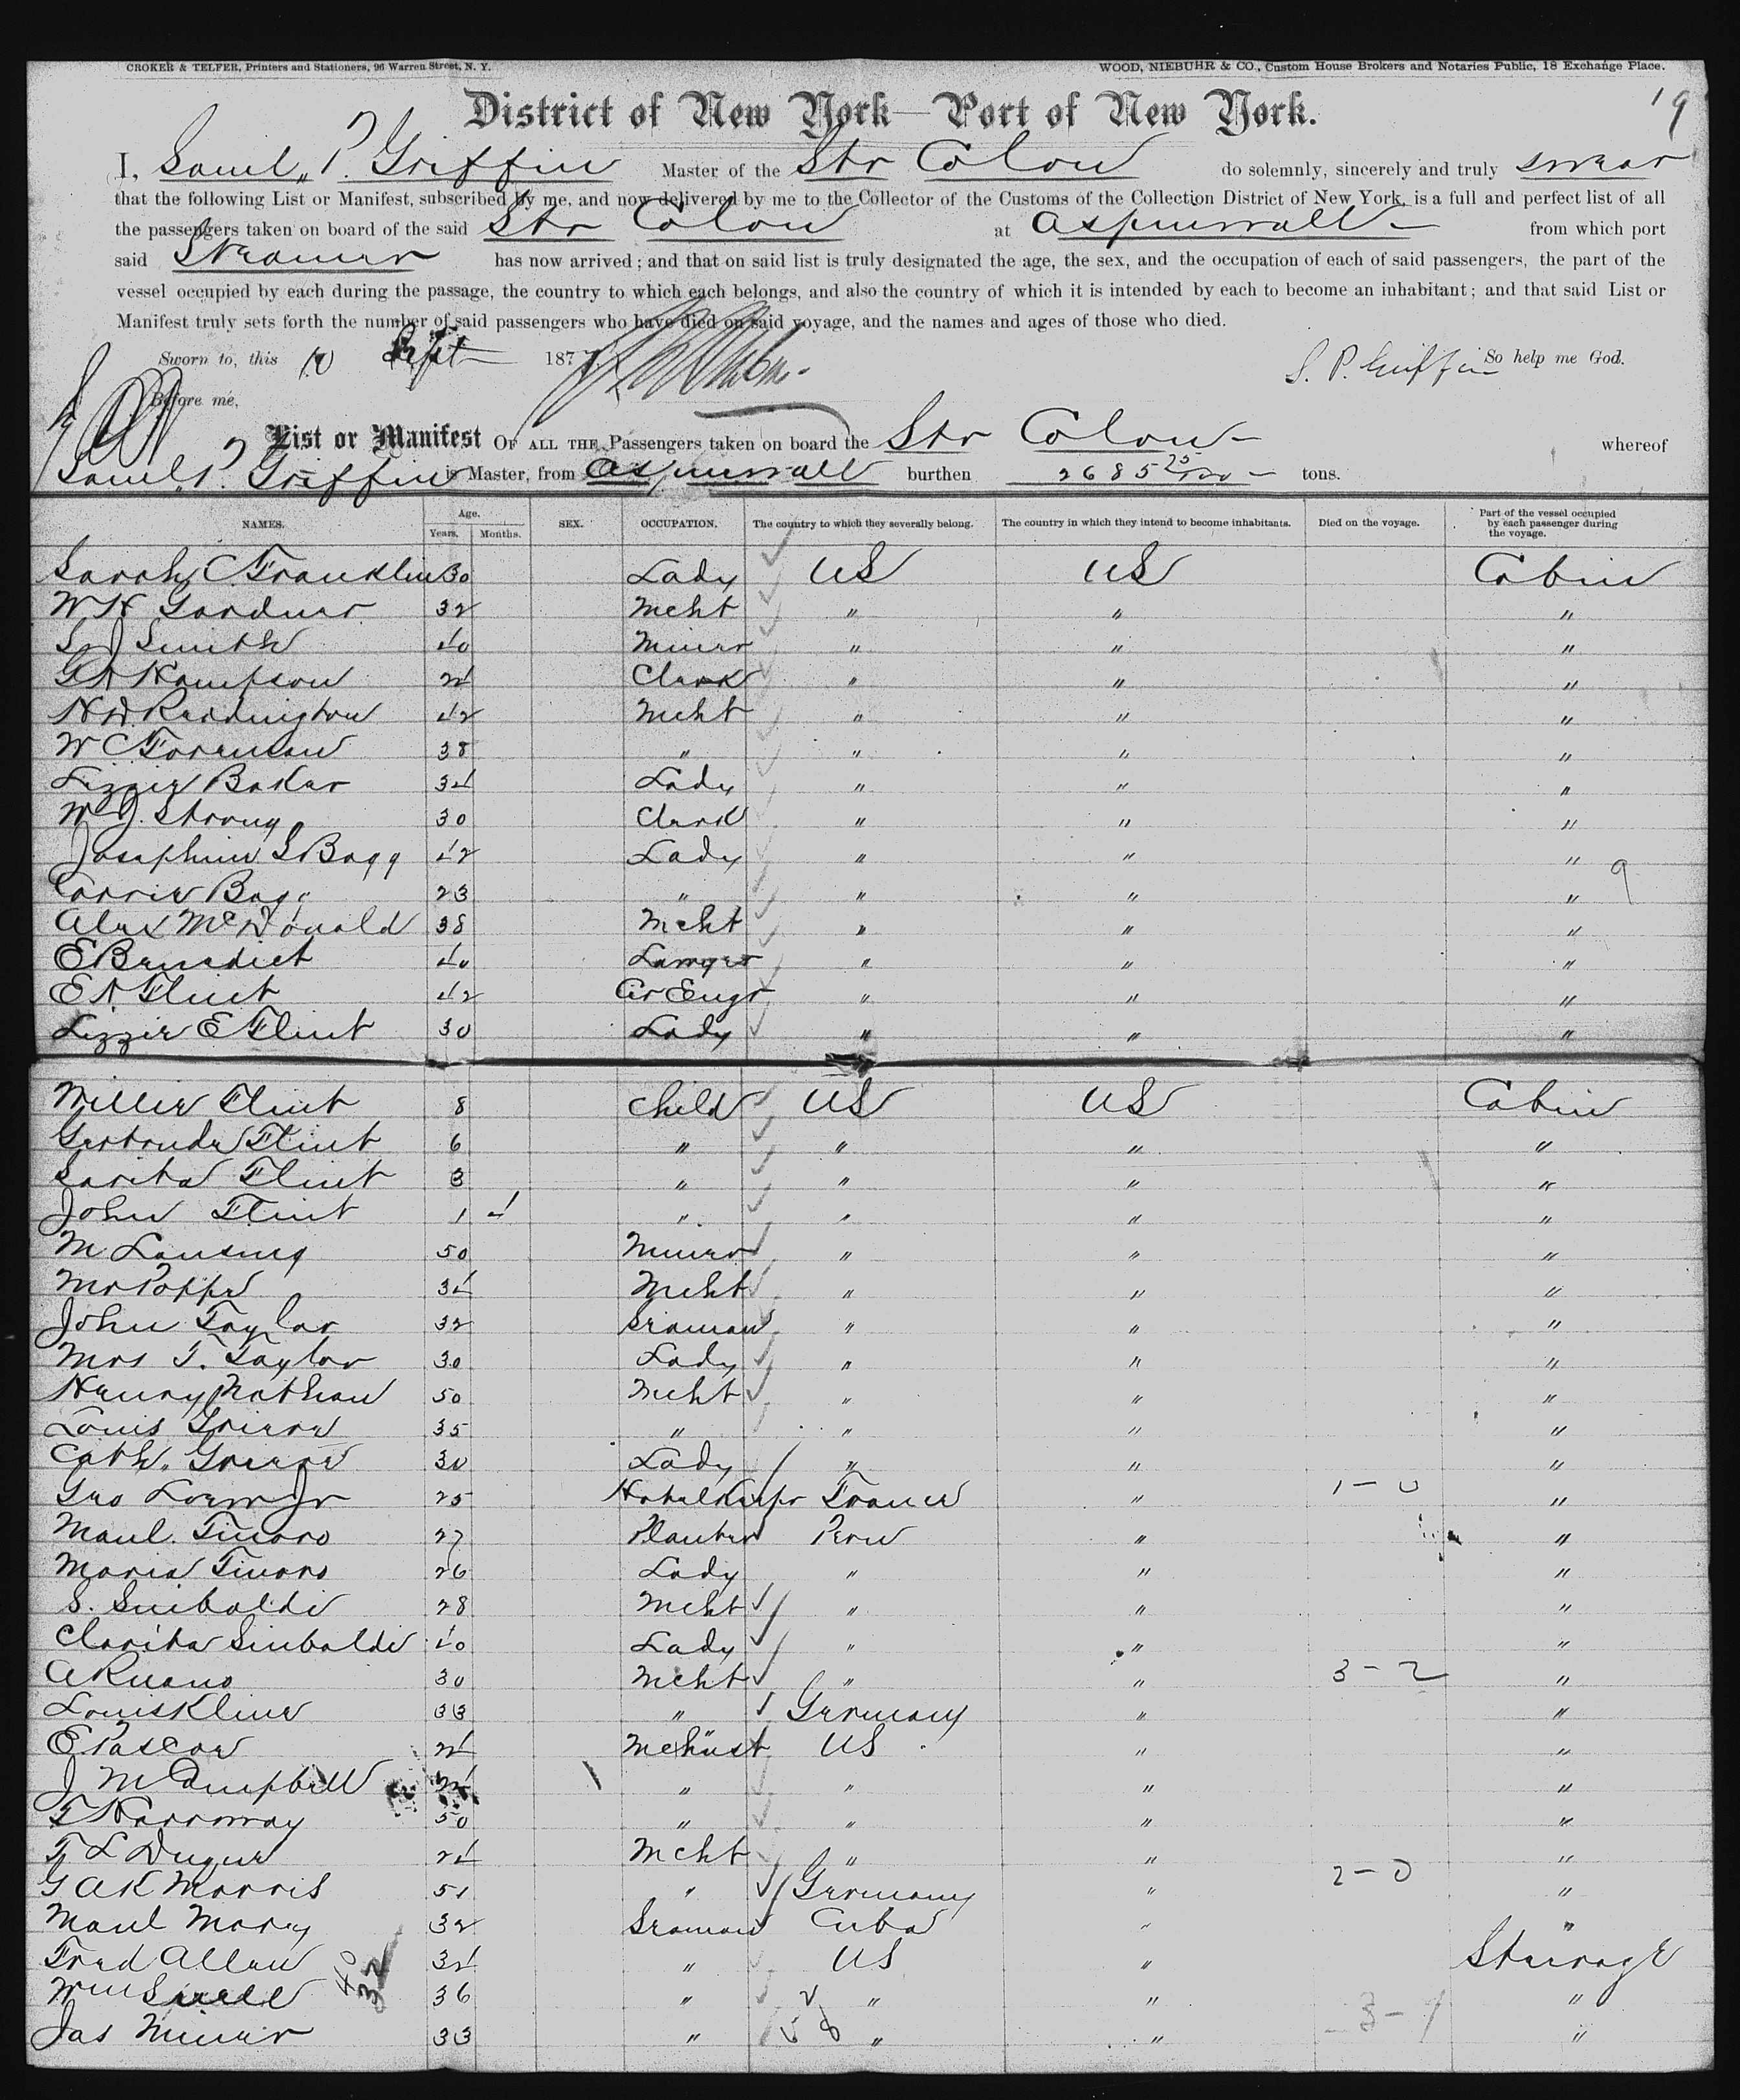 CROKER & TELFER, Printers and Stationers, 96 Warren Street, N. Y.
WOOD, NIEBUHR & CO., Custom House Brokers and Notaries Public, 18 Exchange Place.
19
District of New York—Port of New York.
I, Saml. P. Griffin Master of the Str Colon do solemnly, sincerely and truly swear
that the following List or Manifest, subscribed by me, and now delivered by me to the Collector of the Customs of the Collection District of New York, is a full and perfect list of all
the passengers taken on board of the said Str Colon at Aspinwall from which port
said Steamer has now arrived; and that on said list is truly designated the age, the sex, and the occupation of each of said passengers, the part of the
vessel occupied by each during the passage, the country to which each belongs, and also the country of which it is intended by each to become an inhabitant; and that said List or
Manifest truly sets forth the number of said passengers who have died on said voyage, and the names and ages of those who died.
Sworn to, this 10 Sept 187
S. P. Griffin So help me God.
Before me,
List or Manifest OF ALL THE Passengers taken on board the Str Colon whereof
Saml. P. Griffin is Master, from Aspinwall burthen 2685 25/100 tons.
NAMES. Age. Years. Months. SEX. OCCUPATION. The country to which they severally belong. The country in which they intend to become inhabitants. Died on the voyage. Part of the vessel occupied by each passenger during the voyage.
Sarah C Franklin 30 Lady US US Cabin
W H Gardner 32 Mcht " " "
S J Smith 40 Miner " " "
G A Hampson 24 Clerk " " "
H D Reddington 42 Mcht " " "
W C Foreman 38 " " " "
Lizzie Baker 34 Lady " " "
W J. Strong 30 Clerk " " "
Josephine S Bagg 42 Lady " " " 9
Carrie Bagg 23 " " " "
Alex McDonald 38 Mcht " " "
E Benedict 40 Lawyer " " "
E A Flint 42 Civ Engr " " "
Lizzie E Flint 30 Lady " " "
Willie Flint 8 Child US US Cabin
Gertrude Flint 6 " " " "
Sarita Flint 3 " " " "
John Flint 1 4 " " " "
M Lansing 50 Miner " " "
Mr Poppe 34 Mcht " " "
John Taylor 32 Seaman " " "
Mrs T. Taylor 30 Lady " " "
Henry Nathan 50 Mcht " " "
Louis 35 " " " "
Cath. 30 Lady " " "
Geo Loew Jr 25 Hotel Keepr France " 1-0 "
Manl. Tinoro 27 Planter Peru " "
Maria Tinoro 26 Lady " " "
S. Sinibaldi 28 Mcht " " "
Clarita Sinibaldi 40 Lady " " "
A Ruano 30 Mcht " " 3-2 "
Louis Kline 33 " Germany " "
E. Pascoe 24 Mchinst US " "
J M Campbell 24 " " " "
T Harroway 50 " " " "
T L Dugue 24 Mcht " " "
G A K Morris 51 " Germany " 2-0 "
Manl Mary 32 Seaman Cuba " "
Fred Allen 34 " US " Steerage
Wm 36 " " " "
Jas Miner 33 " " " 3-1 "
40
32